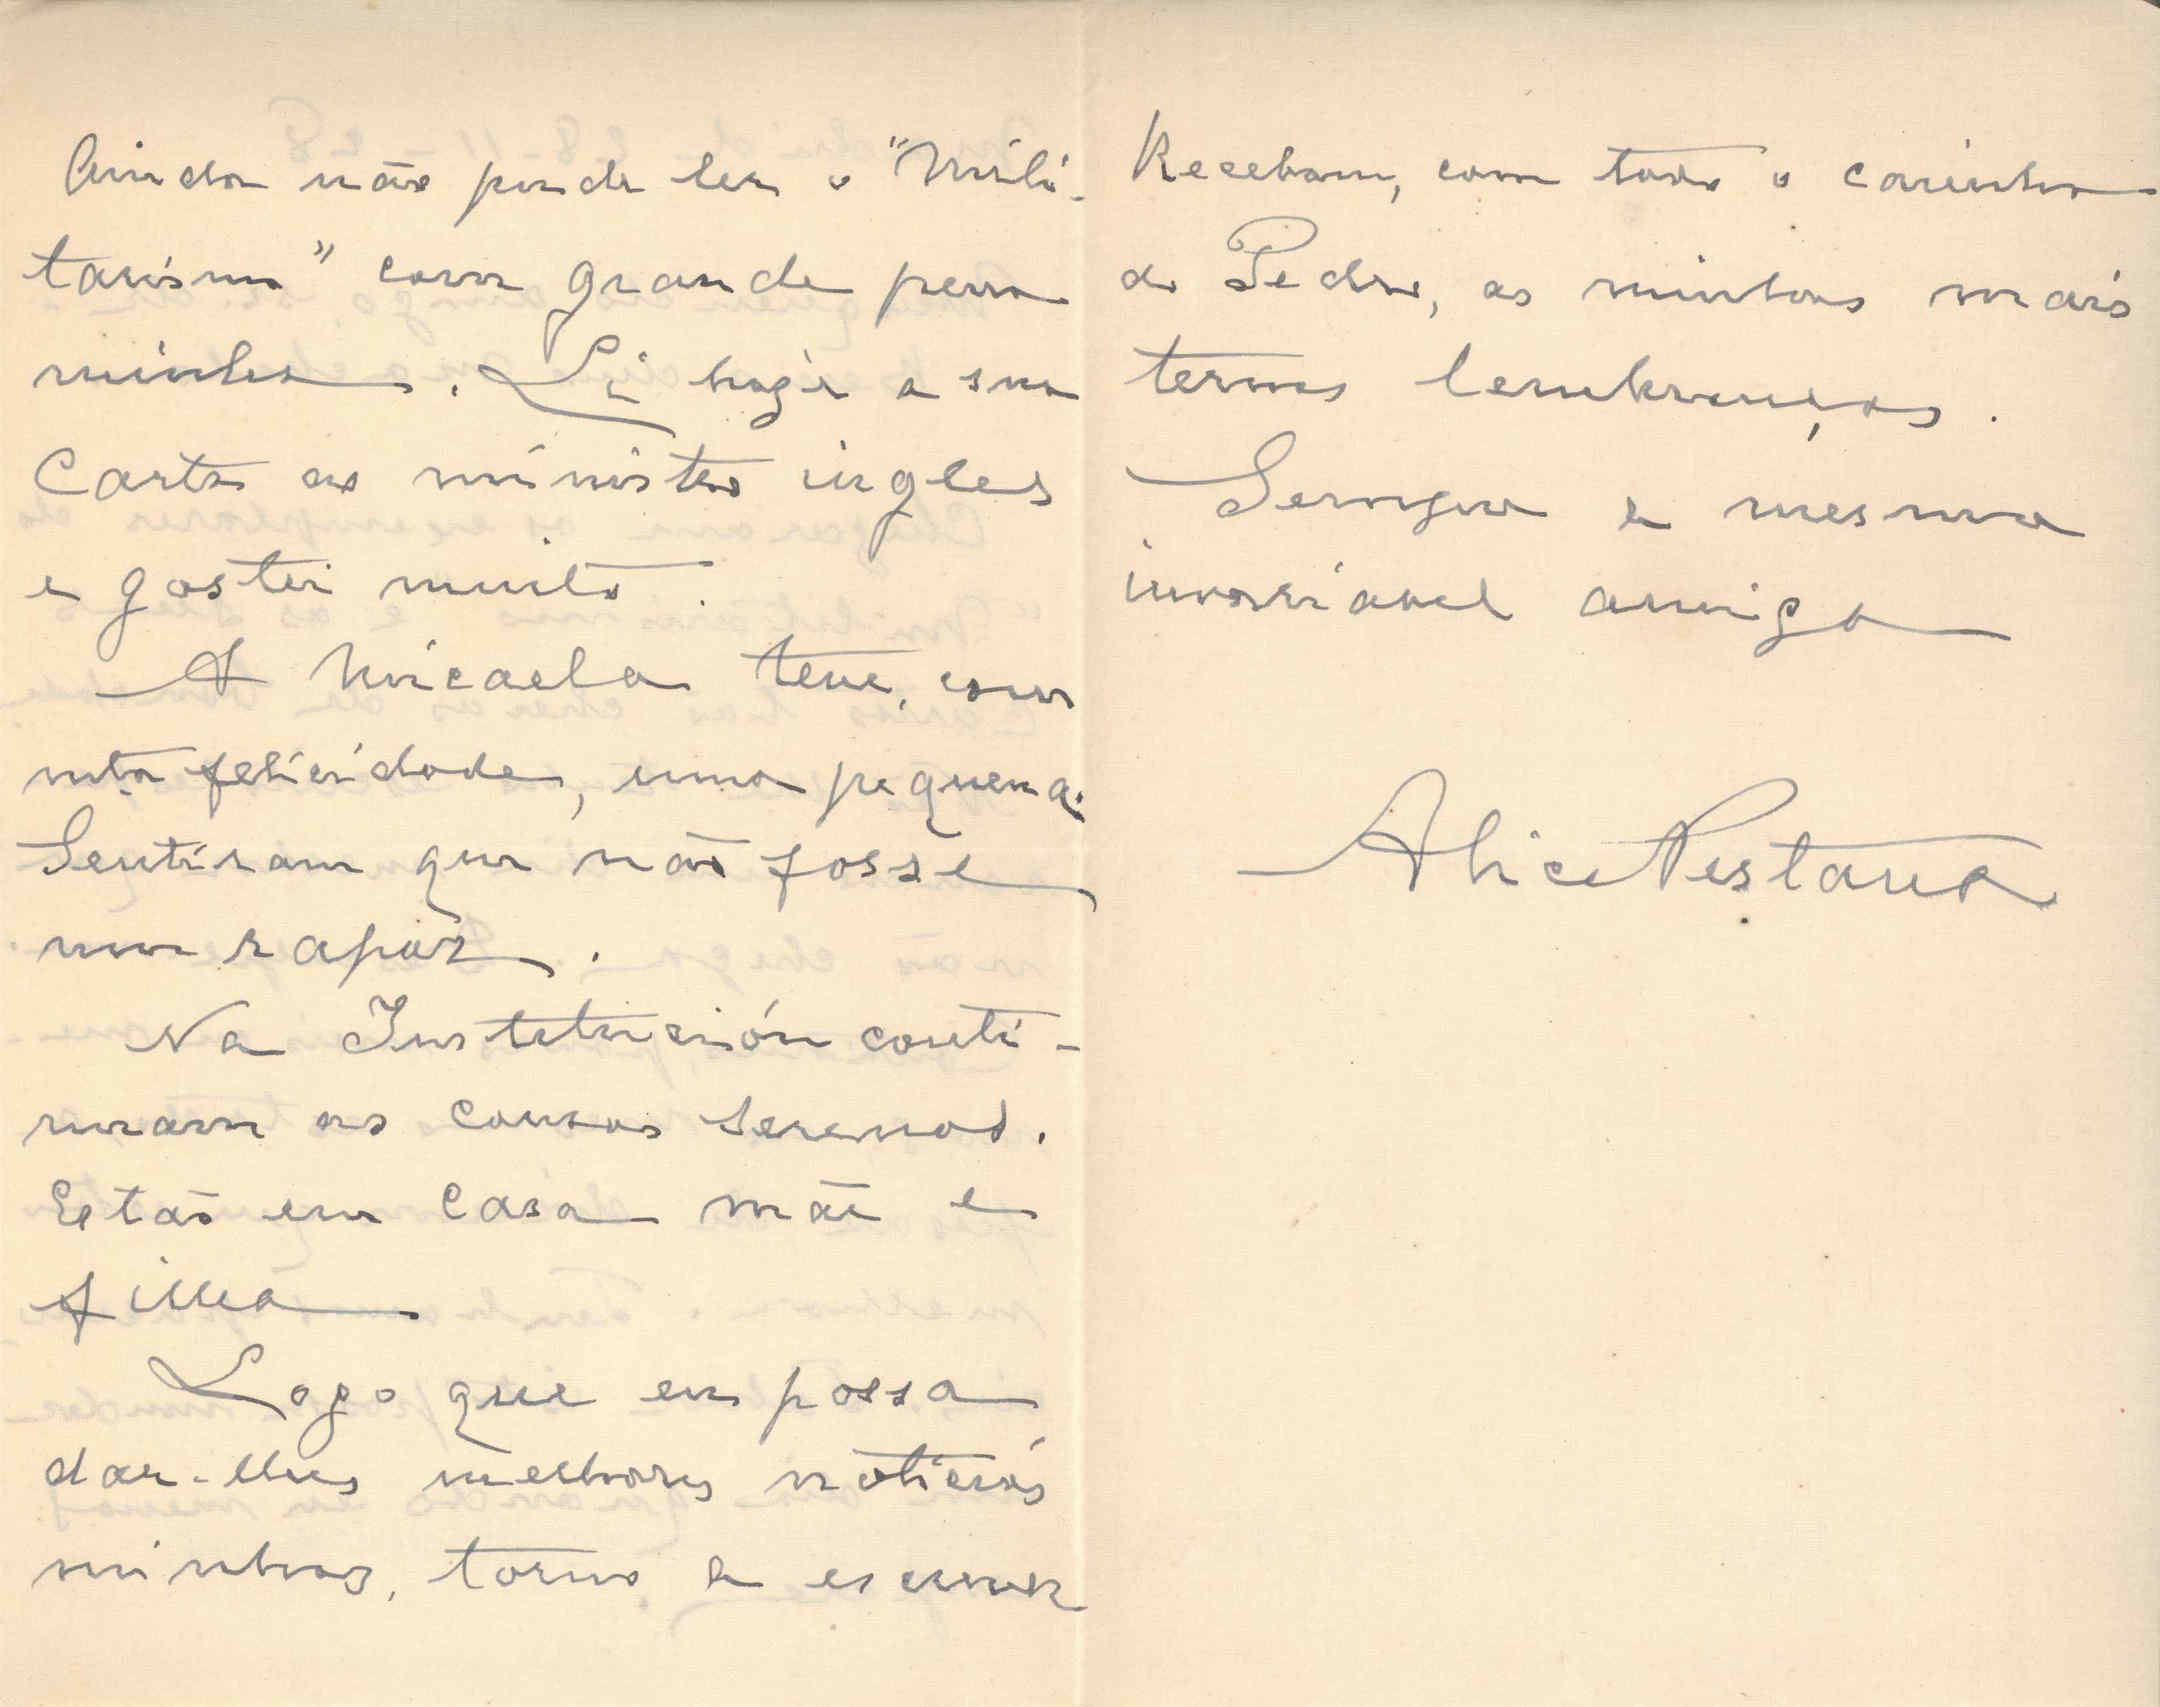 Ainda não pude ler o "Mili-
tarismo" com grande pena
minha. Li hoje a sua
Carta ao ministro ingles
e gostei muito.
A Micaela teve, com
mta felicidade, uma pequena.
Sentiram que não fosse
um rapaz.
Na Institución conti-
nuam as cousas serenas.
Estão em Casa mãe e
filha
Logo que eu possa
dar-lhes melhores noticias
minhas, torno a escrever
Recebam, com todo o carinho
do Pedro, as minhas mais
ternas lembranças.
Sempre a mesma
invariavel amiga
Alice Pestana